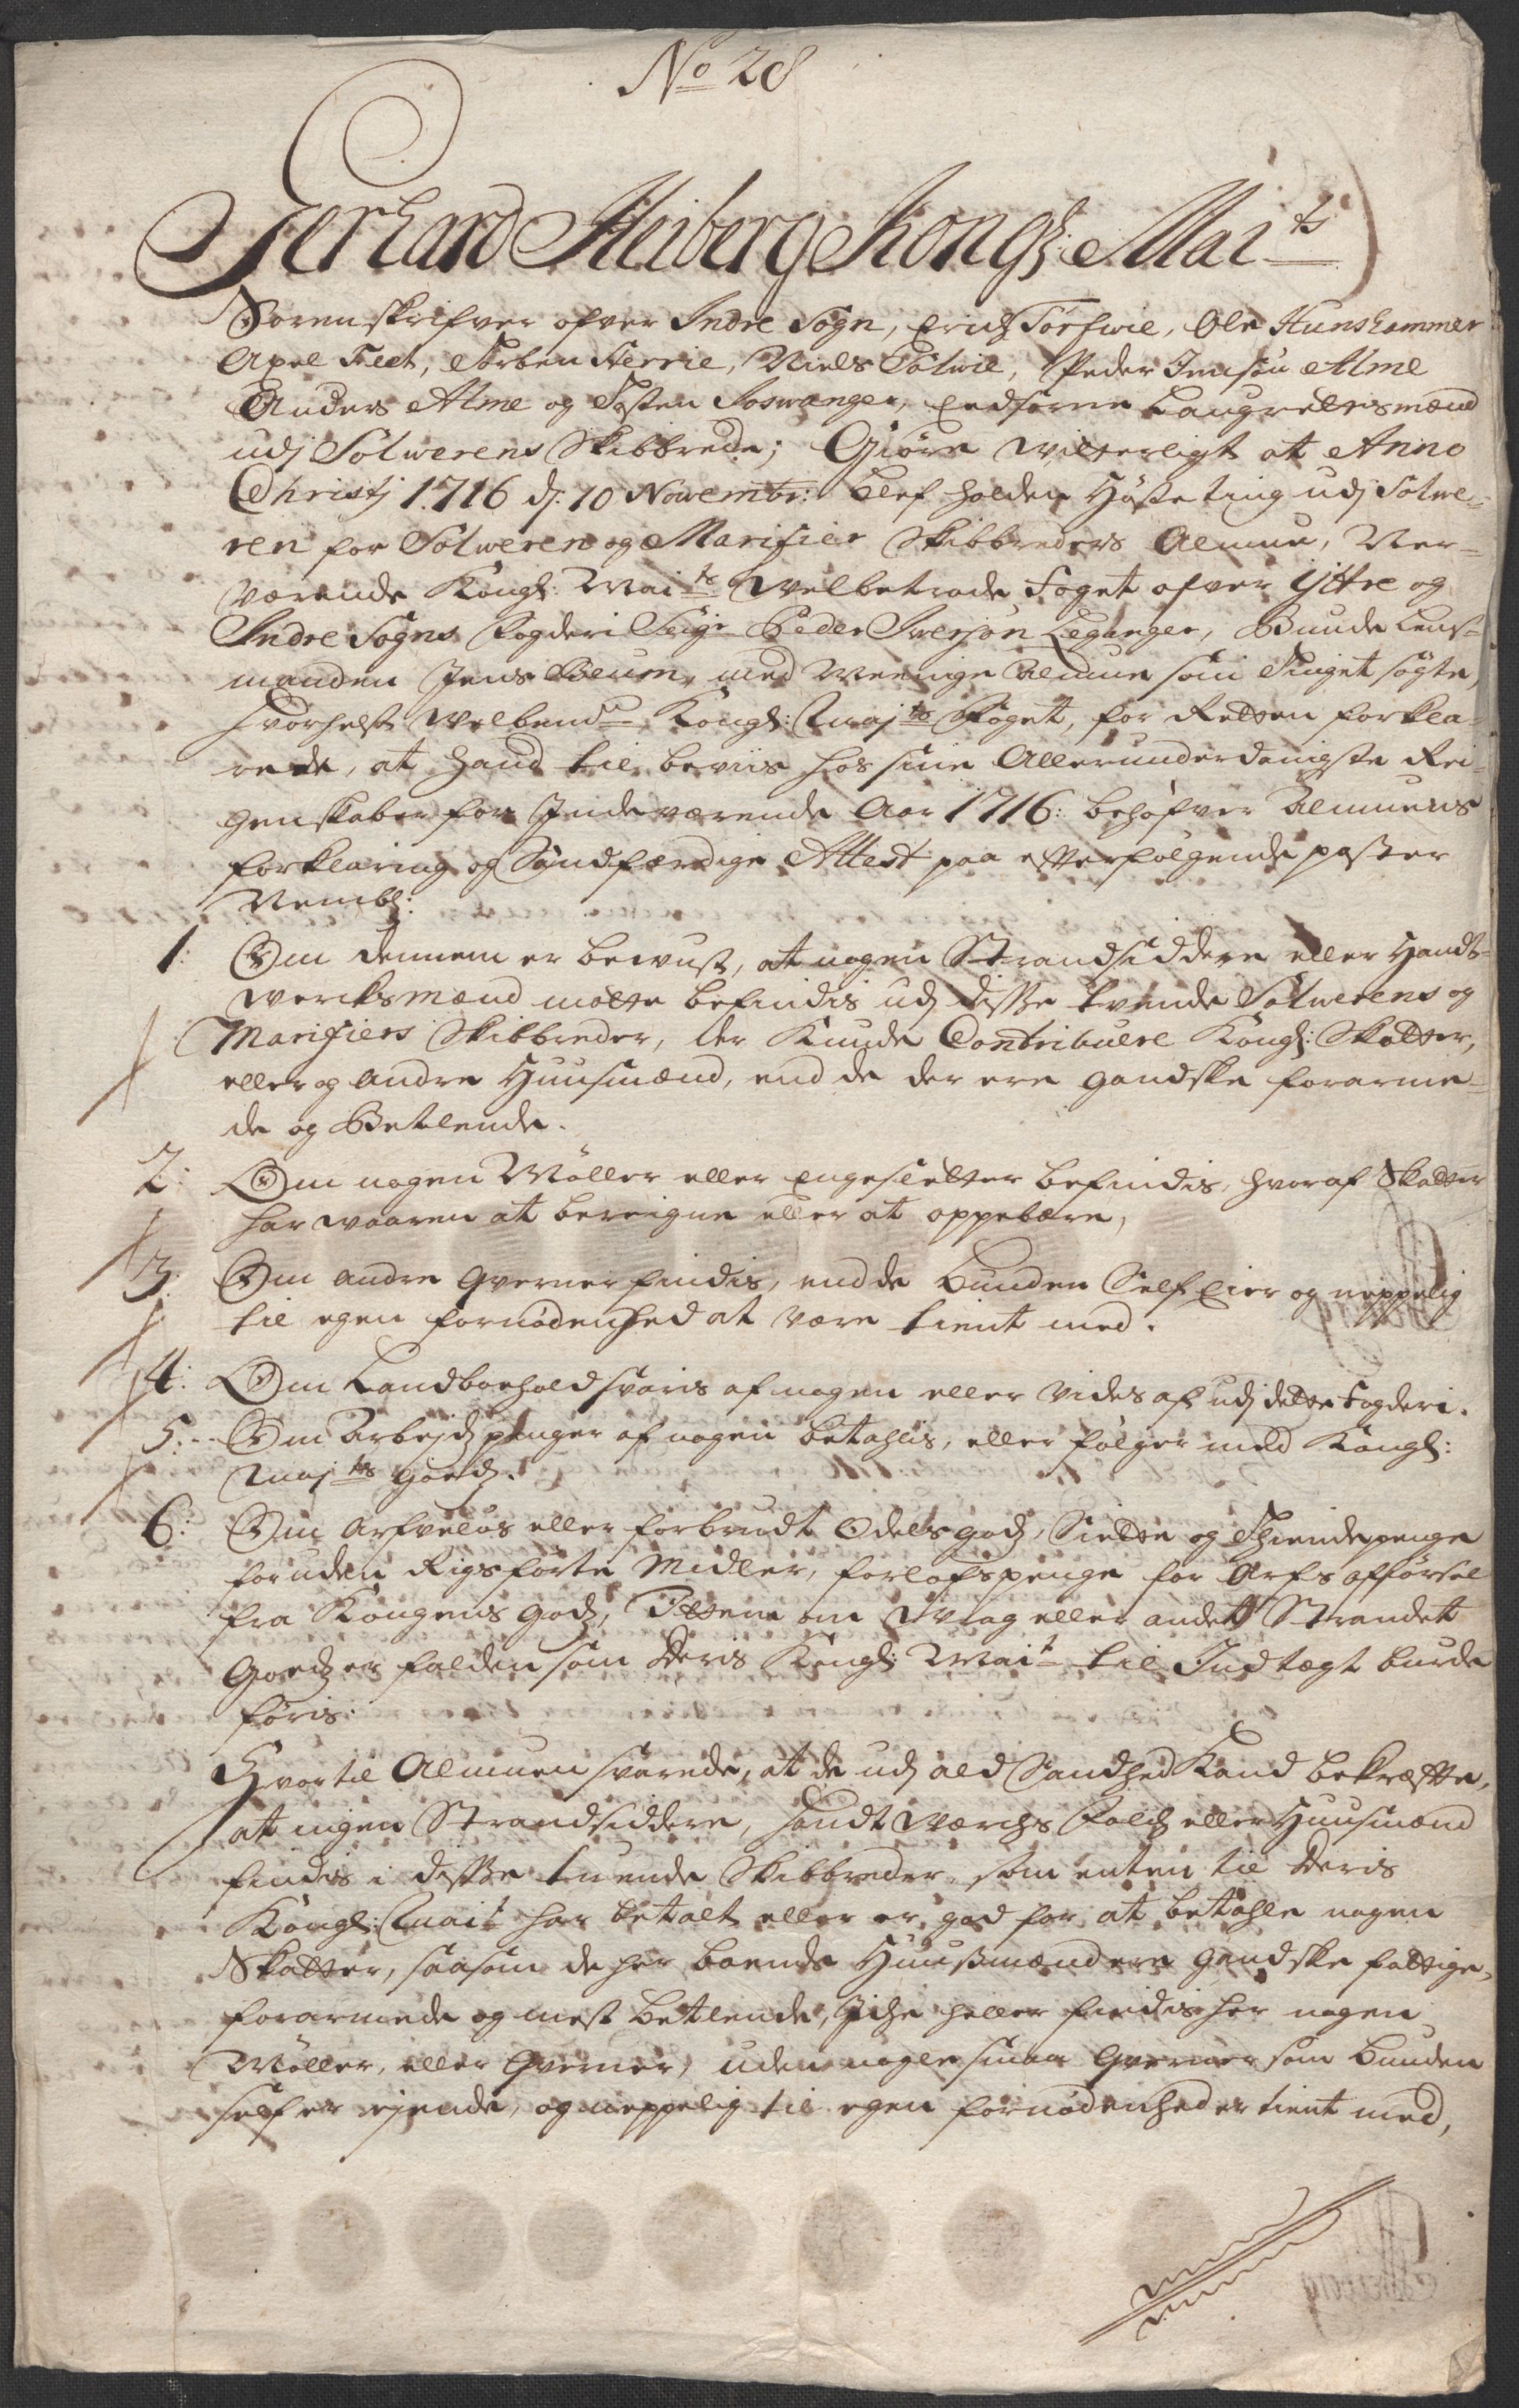 No 28
Gerhard Heiberg Kongl: Mai ts
Sorenskrifver ofver Indre Sogn, Erich Torfwie, Ole Hunshammer
Apel Fleet, Torben Herrie, Niels Tølwie, Peder Jensøn Alme
Anders Alme og Tosten Loswanger, Eedsorne Laugrettismænd
udj Solwerens Skibbrede; Giøre witterligt at Anno
Christj 1716 d: 10 Novembr: blef holden Høste ting udj Solwe-
ren for Solweren og Marifier Skibbreders Almue, Ner-
værende Kongl: Mai ts Welbetrode Foget ofver Yttre og
Indre Sogns Fogderi Seigr Peder Iversøn Leganger, Bunde Lens-
manden Jens Beum, med Meenige Almue som Tinget søgte,
hvorhelst Welbemte Kongl: Maj ts Foget, for Retten forkla-
rede, at hand til beviis hos sine Allerunderdanigste Rei-
genskaber for Indeværende Aar 1716: behøfver Almuens
forklaring og Sandfærdige Attest paa efterfølgende poster
Nembl:
1: Om dennem er bewust, at nogen Strandsiddere eller Handt-
wercksmænd motte befindis udj disse tvende Solwerens og
Marifiers Skibbreder, der kunde Contribuere Kongl: Skatter,
eller og andre Huusmænd, end de der ere gandske forarme-
de og Betlende.
2: Om nogen Møller eller Engesletter befindis, hvoraf Skatter
har waaren at bereigne eller at oppebære,
3: Om andre Qverner findis, end de Bunden Self Eier og neppelig
til egen fornødenhed at være tient med.
4: Om Landboehold svaris af nogen eller vides af udj dette Fogderi.
5: Om Arbejdspenger af nogen betahlis, eller følger med Kongl:
Maj ts Goedz.
6: Om arfveløs eller forbrudt Odelsgodz, Siette og Thiendepenge
foruden Rigs førte Midler, forlofspenge for Arfs afførsel
fra Kongens Godz, Ittem om Wrag eller andet Strandet
Goedz er falden som Deris Kongl: Mai t til Indtægt burde
føris:
Hvortil Almuen svarede, at de udj ald Sandhed kand bekræfte,
at ingen Strandsiddere, handtwærchs Folch eller Huusmænd
findis i disse tuende Skibbreder, som enten til Deris
Kongl: Mai t har betalt eller er god for at betahle nogen
Skatter, saasom de her boende Huusmænd ere gandske fattige,
forarmede og mest betlende, Iche heller findis her nogen
Møller, eller Qverner, uden nogle smaa Qverner som Bunden
self er ejende, og neppelig til egen fornødenhed er tient med,